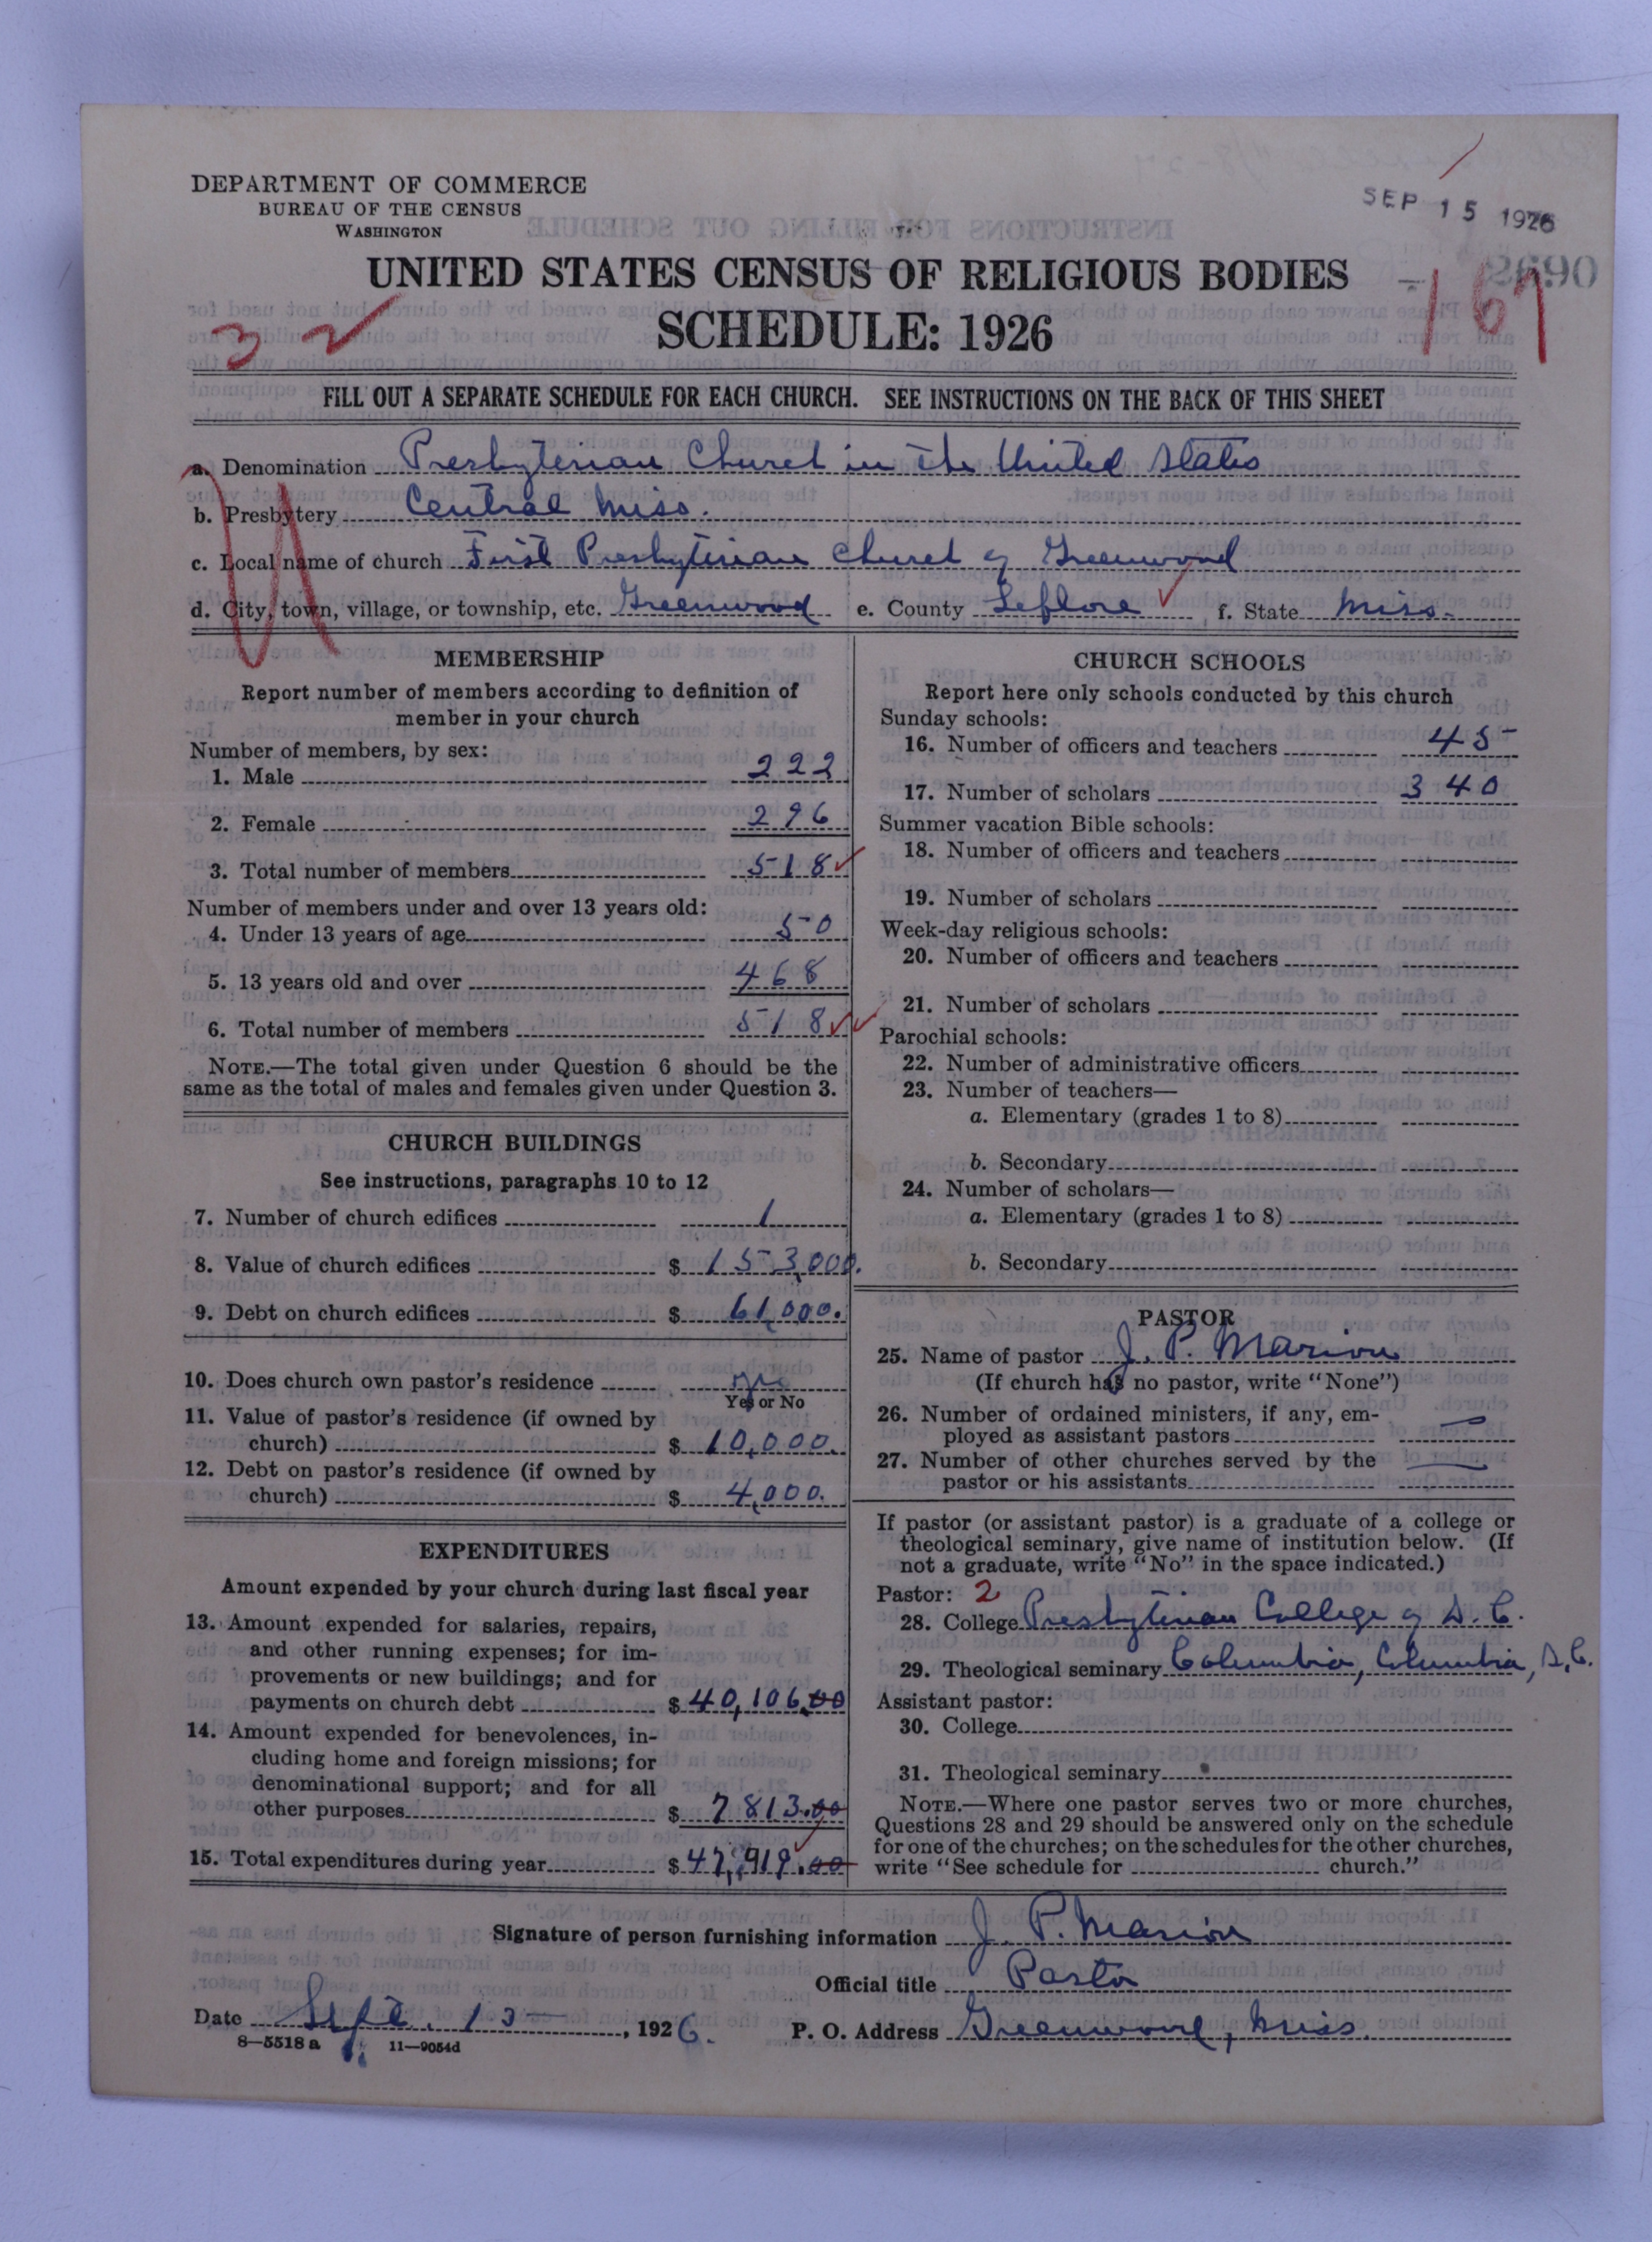 DEPARTMENT OF COMMERCE
BUREAU OF THE CENSUS
WASHINGTON
SEP 15 1926
UNITED STATES CENSUS OF RELIGIOUS BODIES
SCHEDULE: 1926
32
167
FILL OUT A SEPARATE SCHEDULE FOR EACH CHURCH. SEE INSTRUCTIONS ON THE BACK OF THIS SHEET
a. Denomination Presbyterian Church in the United States
b. Presbytery Central Miss.
c. Local name of church First Presbyterian Church of Greenwood
d. City, town, village, or township, etc. Greenwood e. County Leflore f. State Miss.
MEMBERSHIP
Report number of members according to definition of
member in your church
Number of members, by sex:
1. Male 222
2. Female 296
3. Total number of members 518
Number of members under and over 13 years old:
4. Under 13 years of age 50
5. 13 years old and over 468
6. Total number of members 518
NOTE.—The total given under Question 6 should be the
same as the total of males and females given under Question 3.
CHURCH BUILDINGS
See instructions, paragraphs 10 to 12
7. Number of church edifices 1
8. Value of church edifices $ 153,000.
9. Debt on church edifices $ 61,000.
10. Does church own pastor's residence yes
Yes or No
11. Value of pastor's residence (if owned by
church) $ 10,000.
12. Debt on pastor's residence (if owned by
church) $ 4,000.
EXPENDITURES
Amount expended by your church during last fiscal year
13. Amount expended for salaries, repairs,
and other running expenses; for im-
provements or new buildings; and for
payments on church debt $ 40,106.00
14. Amount expended for benevolences, in-
cluding home and foreign missions; for
denominational support; and for all
other purposes $ 7813.00
15. Total expenditures during year $ 47,919.00
CHURCH SCHOOLS
Report here only schools conducted by this church
Sunday schools:
16. Number of officers and teachers 45
17. Number of scholars 340
Summer vacation Bible schools:
18. Number of officers and teachers
19. Number of scholars
Week-day religious schools:
20. Number of officers and teachers
21. Number of scholars
Parochial schools:
22. Number of administrative officers
23. Number of teachers—
a. Elementary (grades 1 to 8)
b. Secondary
24. Number of scholars—
a. Elementary (grades 1 to 8)
b. Secondary
PASTOR
25. Name of pastor J. P. Marion
(If church has no pastor, write "None")
26. Number of ordained ministers, if any, em-
ployed as assistant pastors —
27. Number of other churches served by the
pastor or his assistants —
If pastor (or assistant pastor) is a graduate of a college or
theological seminary, give name of institution below. (If
not a graduate, write "No" in the space indicated.)
Pastor: 2
28. College Presbyterian College of S. C.
29. Theological seminary Columbia, Columbia, S.C.
Assistant pastor:
30. College
31. Theological seminary
NOTE.—Where one pastor serves two or more churches,
Questions 28 and 29 should be answered only on the schedule
for one of the churches; on the schedules for the other churches,
write "See schedule for church."
Signature of person furnishing information J. P. Marion
Official title Pastor
Date Sept. 13, 1926.
P. O. Address Greenwood, Miss.
8—5518 a 11—9054d